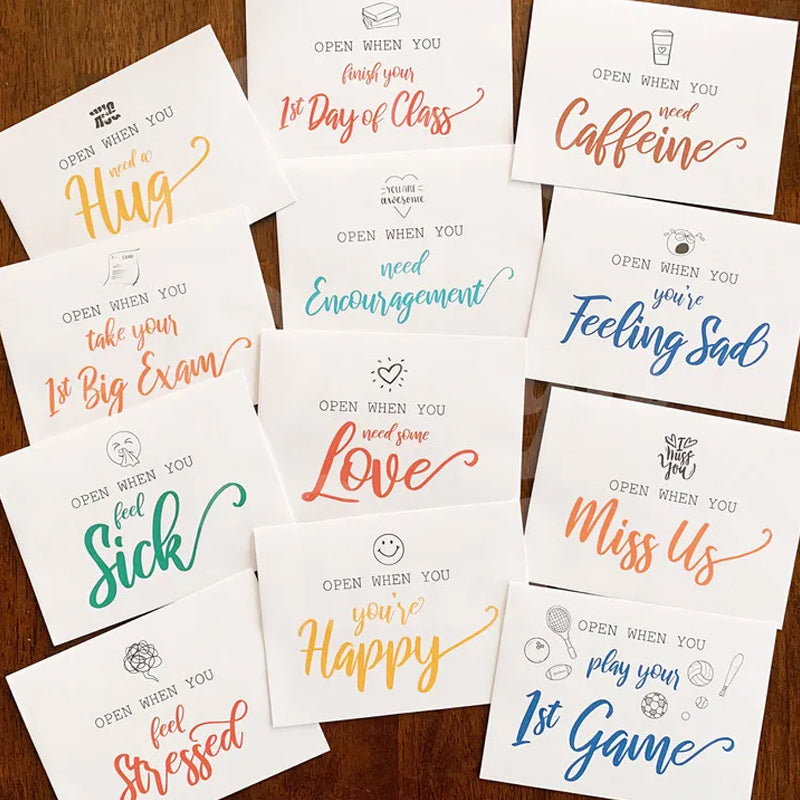 HUG
OPEN WHEN YOU
need a
Hug
OPEN WHEN YOU
finish your
1st Day of Class
OPEN WHEN YOU
need
Caffeine
EXAM
OPEN WHEN YOU
take your
1st Big Exam
YOU ARE
awesome
OPEN WHEN YOU
need
Encouragement
OPEN WHEN YOU
you're
Feeling Sad
OPEN WHEN YOU
feel
Sick
OPEN WHEN YOU
need some
Love
I
Miss
You
OPEN WHEN YOU
Miss Us
OPEN WHEN YOU
feel
Stressed
OPEN WHEN YOU
you're
Happy
OPEN WHEN YOU
play your
1st Game